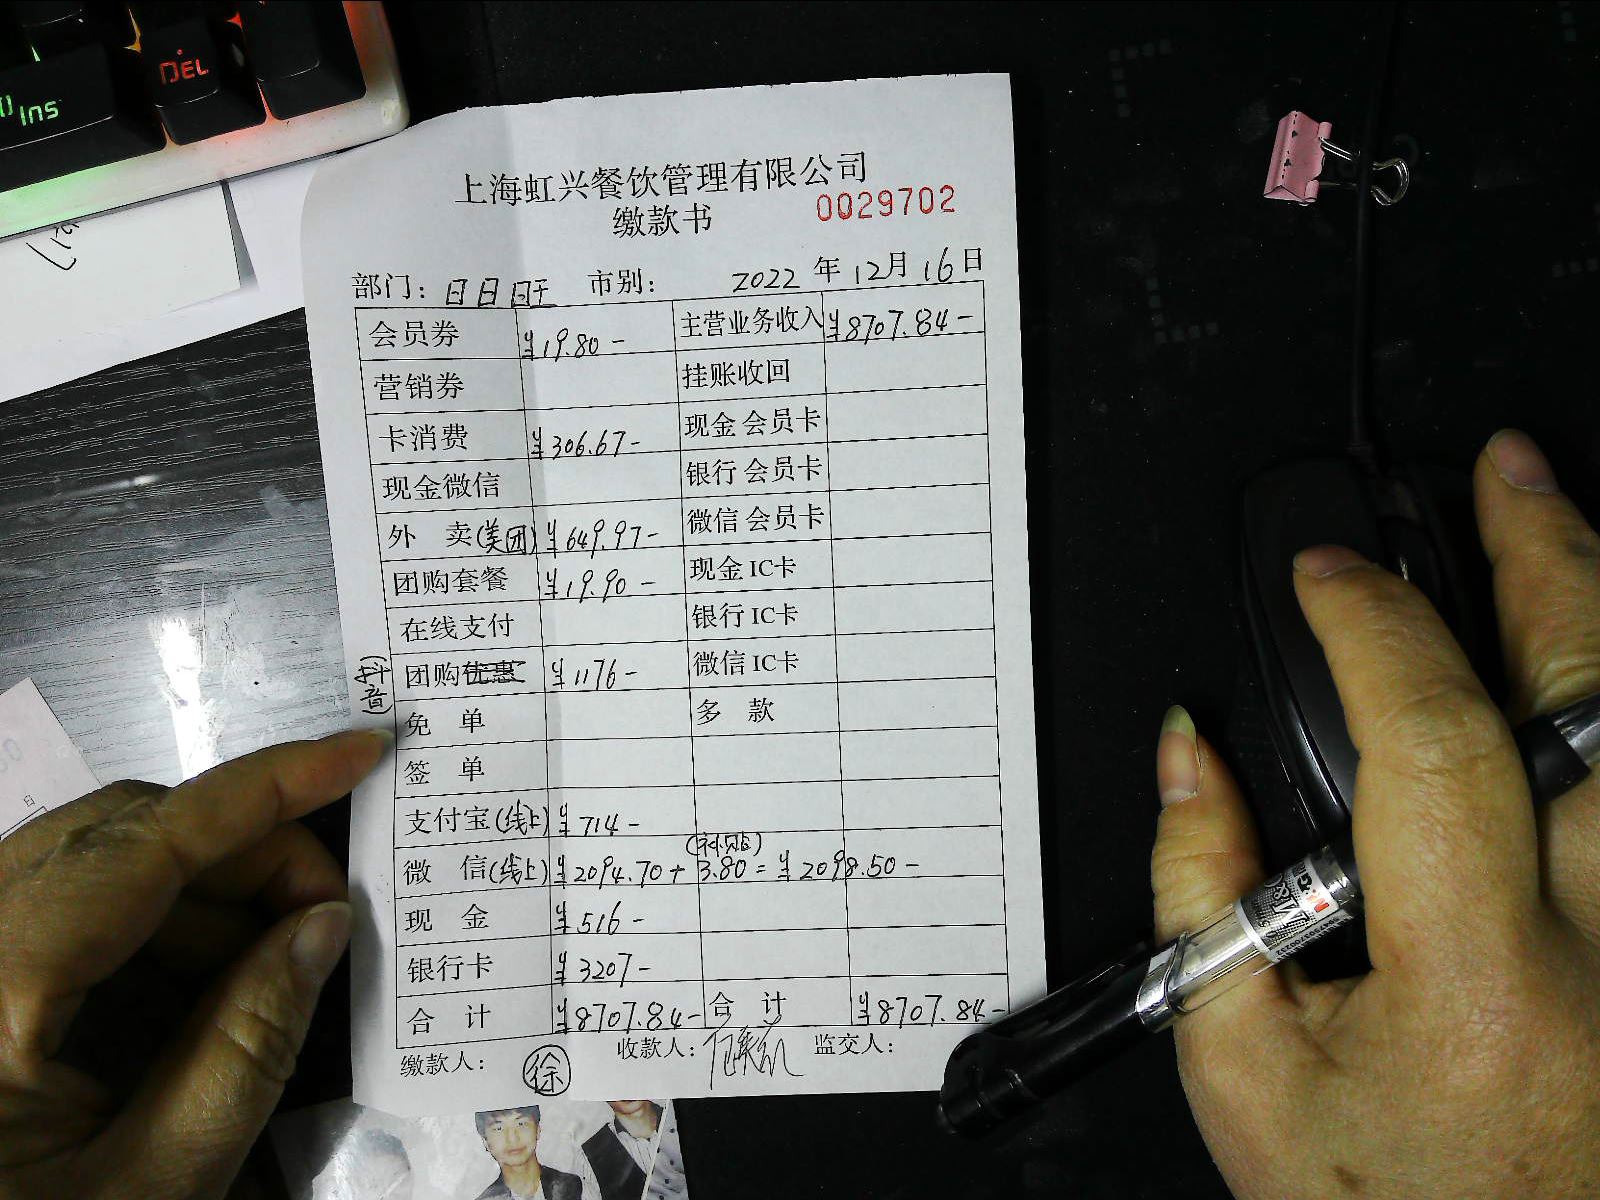 DEL
Ins
上海虹兴餐饮管理有限公司
缴款书 0029702
部门：日日旺 市别： 2022 年 12月 16日
会员券 ¥19.80- 主营业务收入 ¥8707.84-
营销券 挂账收回
卡消费 ¥306.67- 现金 会员卡
现金微信 银行 会员卡
外 卖(美团) ¥649.97- 微信 会员卡
团购套餐 ¥19.90- 现金 IC卡
在线支付 银行 IC卡
(抖音) 团购优惠 ¥1176- 微信 IC卡
免 单 多 款
签 单
支付宝(线上) ¥714-
微 信(线上) ¥2094.70+3.80(补贴)=¥2098.50-
现 金 ¥516-
银行卡 ¥3207-
合 计 ¥8707.84- 合 计 ¥8707.84-
缴款人： 徐 收款人： 监交人：
M&G